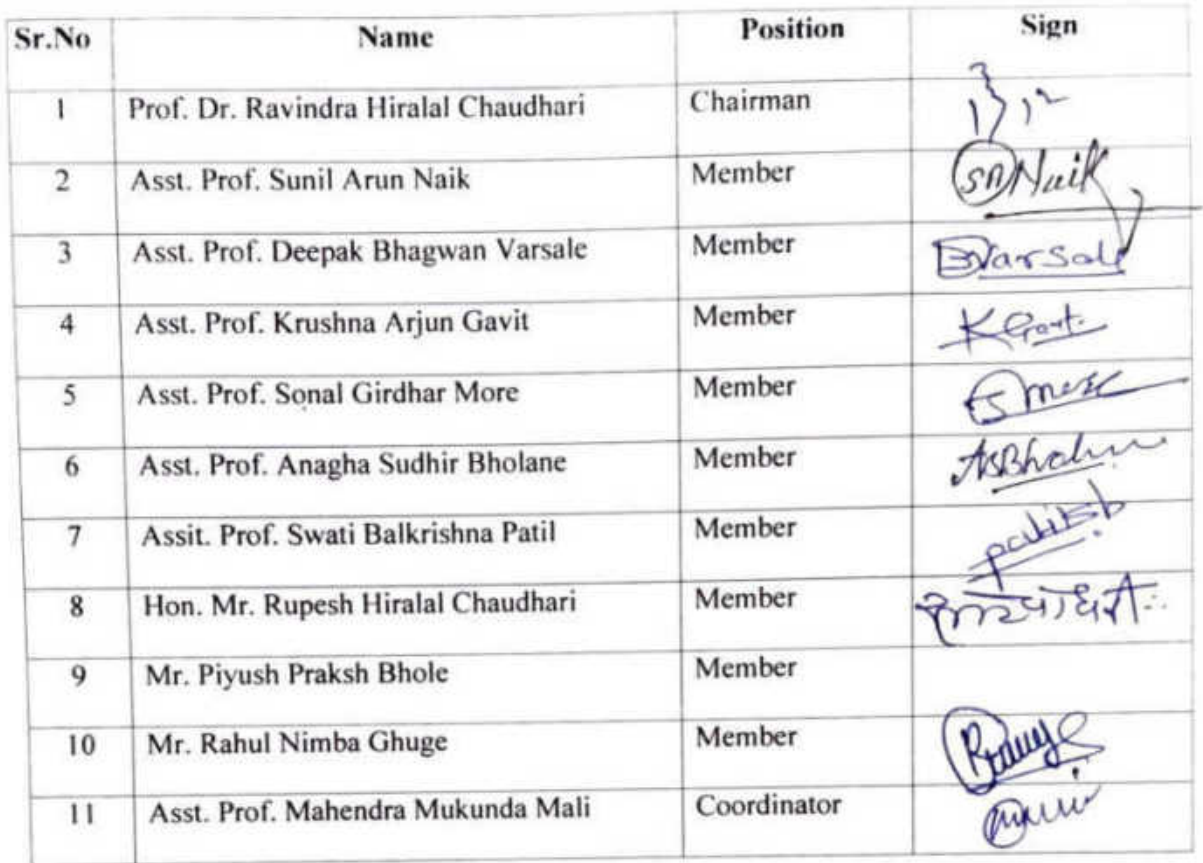 Sr.No Name Position Sign
1 Prof. Dr. Ravindra Hiralal Chaudhari Chairman
2 Asst. Prof. Sunil Arun Naik Member SANaik
3 Asst. Prof. Deepak Bhagwan Varsale Member DVarsale
4 Asst. Prof. Krushna Arjun Gavit Member
5 Asst. Prof. Sonal Girdhar More Member SMore
6 Asst. Prof. Anagha Sudhir Bholane Member
7 Assit. Prof. Swati Balkrishna Patil Member
8 Hon. Mr. Rupesh Hiralal Chaudhari Member
9 Mr. Piyush Praksh Bhole Member
10 Mr. Rahul Nimba Ghuge Member
11 Asst. Prof. Mahendra Mukunda Mali Coordinator